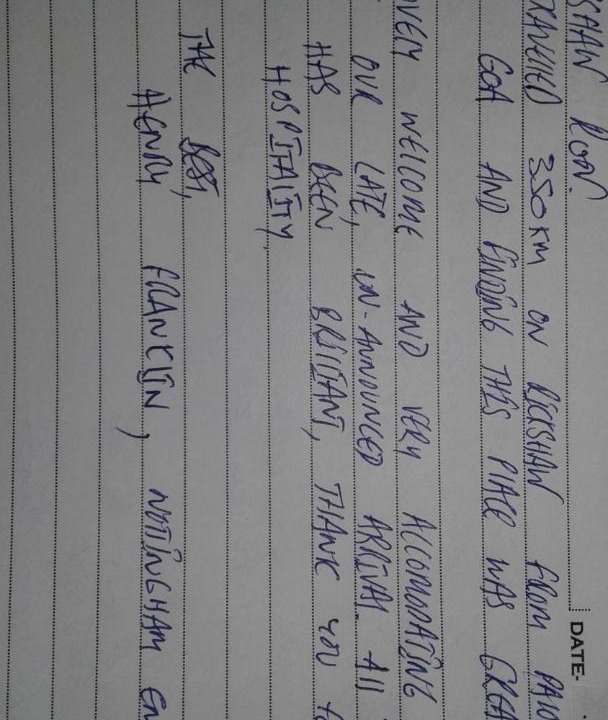 DATE-
RUN.
TRAVELLED 350KM ON RICKSHAW FROM
GOA AND FINDING THIS PLACE WAS
WELCOME AND VERY ACCOMODATING
OUR LATE, UN-ANNOUNCED ARRIVAL. All
HAS BEEN BRILLIANT, THANK YOU
HOSPITALITY,
THE BEST,
HENRY FRANKLIN, NOTTINGHAM